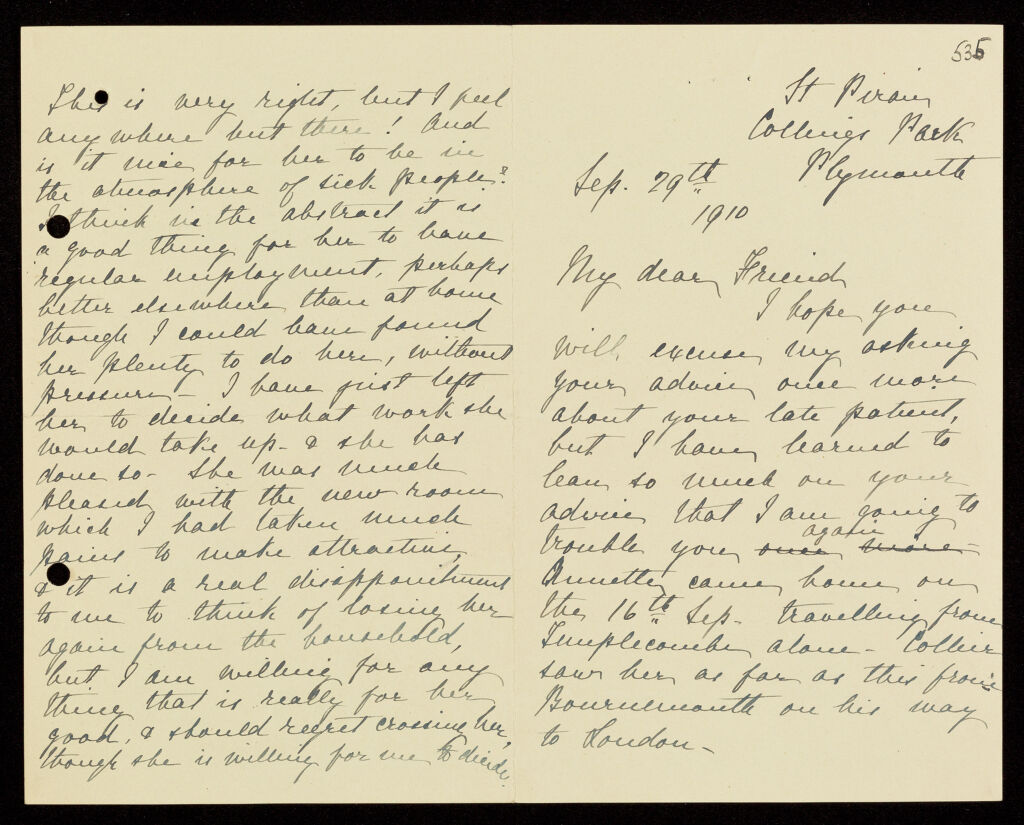 535
St Piran
Collings Park
Plymouth
Sep. 29th
1910
My dear Friend
I hope you
will excuse my asking
your advice once more
about your late patient,
but I have learned to
lean so much on your
advice that I am going to
trouble you once more again
Annette came home on
the 16th Sep. travelling from
Templecombe alone - Collier
saw her as far as this from
Bournemouth on his way
to London -
This is very right, but I feel
anywhere but there! And
is it nice for her to be in
the atmosphere of sick people?
I think in the abstract it is
a good thing for her to have
regular employment, perhaps
better elsewhere than at home
though I could have found
her plenty to do here, without
pressure - I have just left
her to decide what work she
would take up - & she has
done so - She was much
pleased with the new room
which I had taken much
pains to make attractive,
& it is a real disappointment
to me to think of losing her
again from the household,
but I am willing for any
thing that is really for her
good, & should regret crossing her,
though she is willing for me to decide